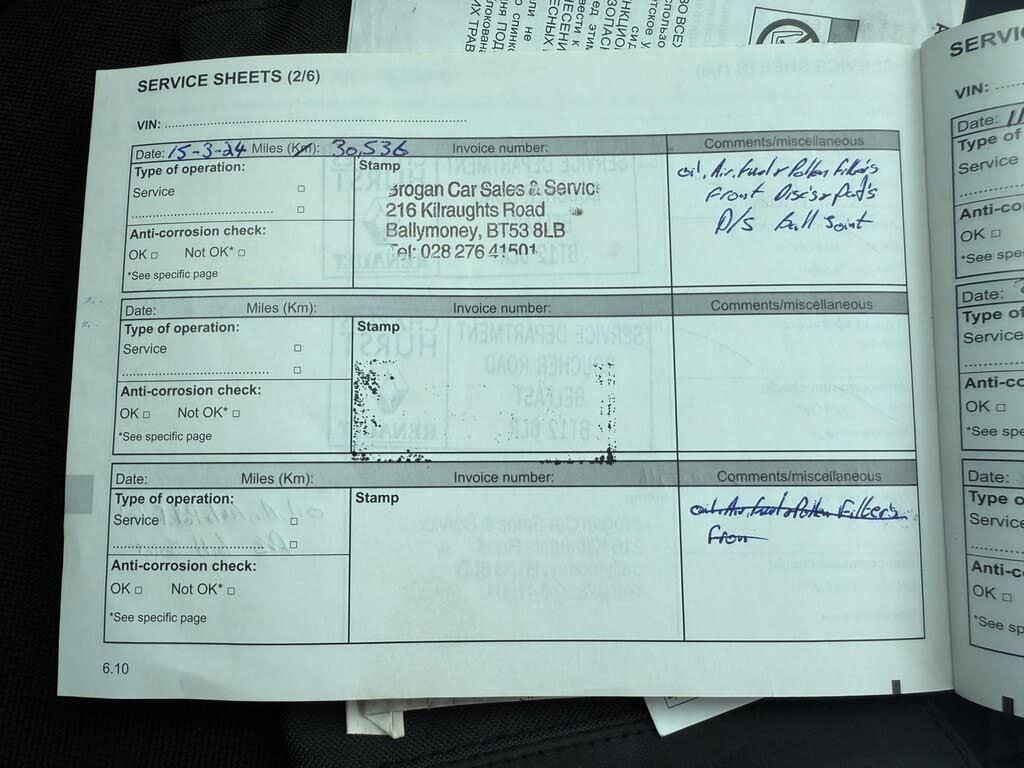 SERVICE SHEETS (2/6)
VIN:
Date: 15-3-24 Miles (Km): 30,536 Invoice number: Comments/miscellaneous
Type of operation:
Service
Anti-corrosion check:
OK Not OK*
*See specific page
Stamp
Brogan Car Sales & Service
216 Kilraughts Road
Ballymoney, BT53 8LB
Tel: 028 276 41501
oil, Air, Fuel & Pollen Filter's
Front Disc's & Pad's
D/S ball Joint
Date: Miles (Km): Invoice number: Comments/miscellaneous
Type of operation:
Service
Anti-corrosion check:
OK Not OK*
*See specific page
Stamp
Date: Miles (Km): Invoice number: Comments/miscellaneous
Type of operation:
Service
Anti-corrosion check:
OK Not OK*
*See specific page
Stamp
oil, Air, Fuel & Pollen Filter's
Fron
6.10
VIN:
Date:
Type of
Service
OK
*See
Date:
Type of
Service
OK
Date:
Service
OK